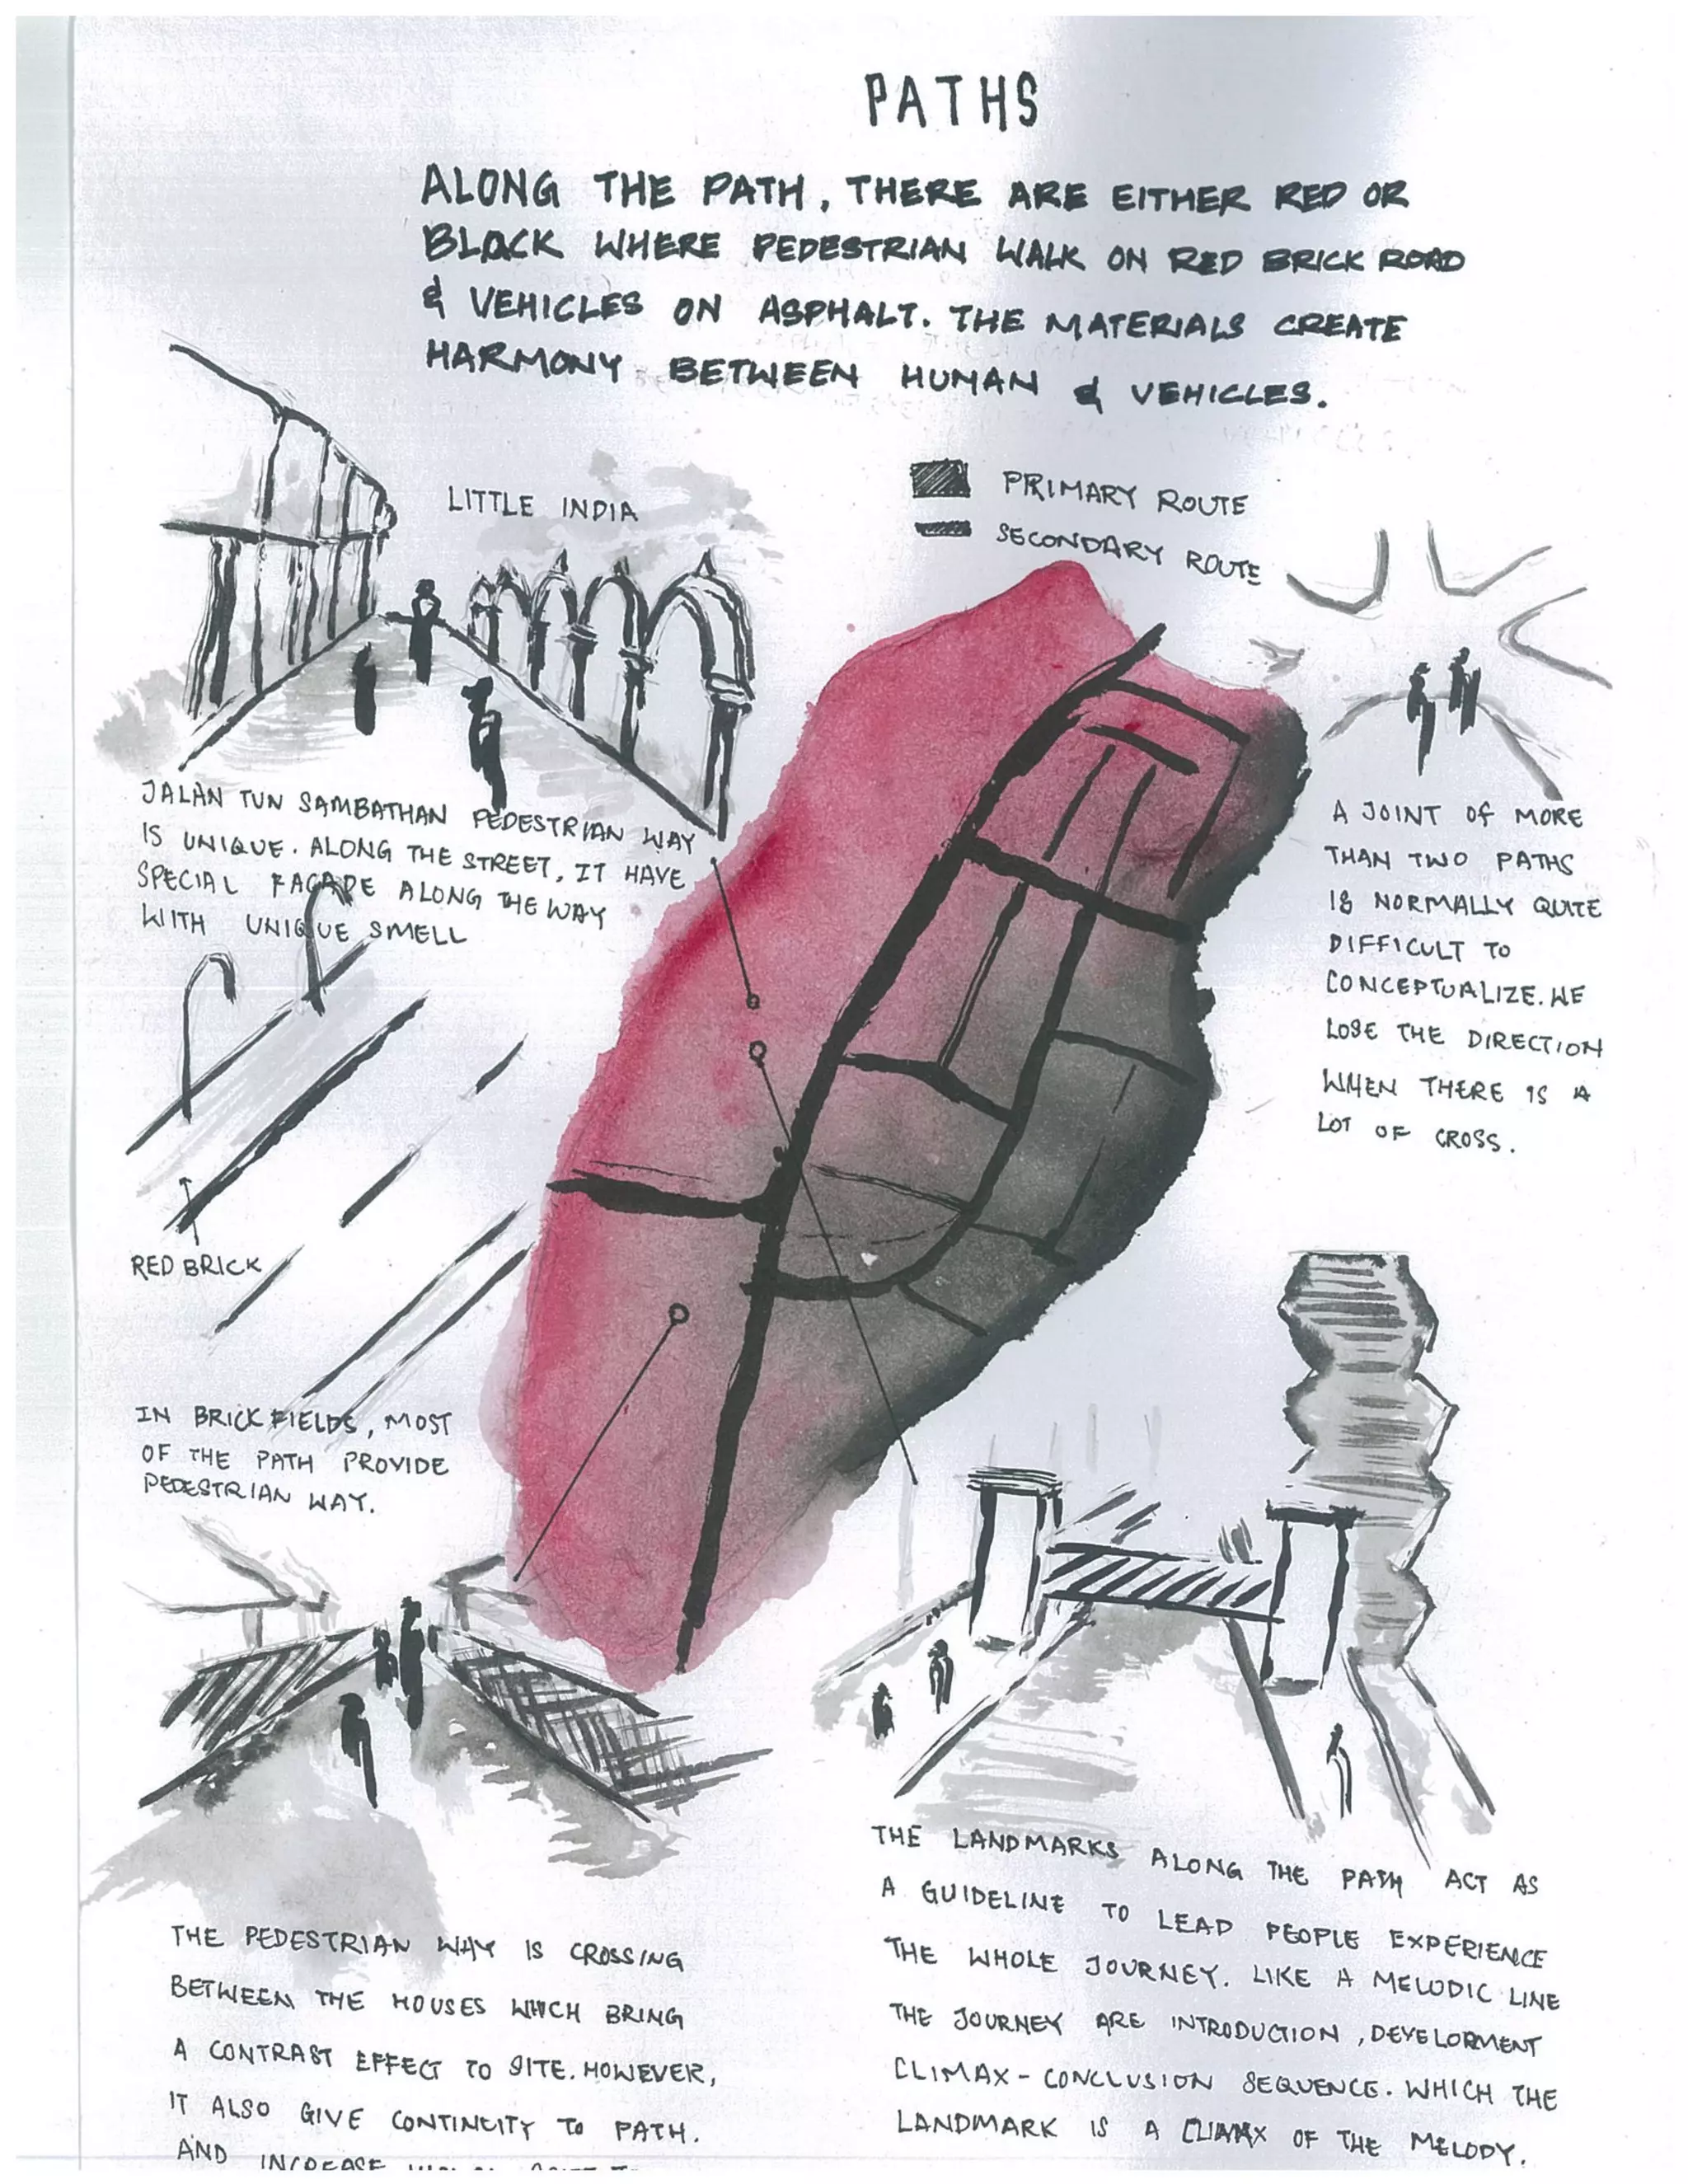 PATHS
ALONG THE PATH, THERE ARE EITHER RED OR
BLACK WHERE PEDESTRIAN WALK ON RED BRICK ROAD
& VEHICLES ON ASPHALT. THE MATERIALS CREATE
HARMONY BETWEEN HUMAN & VEHICLES.
PRIMARY ROUTE
SECONDARY ROUTE
LITTLE INDIA
JALAN TUN SAMBATHAN PEDESTRIAN WAY
IS UNIQUE. ALONG THE STREET, IT HAVE
SPECIAL FACADE ALONG THE WAY
WITH UNIQUE SMELL
A JOINT OF MORE
THAN TWO PATHS
IS NORMALLY QUITE
DIFFICULT TO
CONCEPTUALIZE. WE
LOSE THE DIRECTION
WHEN THERE IS A
LOT OF CROSS.
RED BRICK
IN BRICKFIELDS, MOST
OF THE PATH PROVIDE
PEDESTRIAN WAY.
THE PEDESTRIAN WAY IS CROSSING
BETWEEN THE HOUSES WHICH BRING
A CONTRAST EFFECT TO SITE. HOWEVER,
IT ALSO GIVE CONTINUITY TO PATH.
AND INCREASE
THE LANDMARKS ALONG THE PATH ACT AS
A GUIDELINE TO LEAD PEOPLE EXPERIENCE
THE WHOLE JOURNEY. LIKE A MELODIC LINE
THE JOURNEY ARE INTRODUCTION, DEVELOPMENT
CLIMAX - CONCLUSION SEQUENCE. WHICH THE
LANDMARK IS A CLIMAX OF THE MELODY.